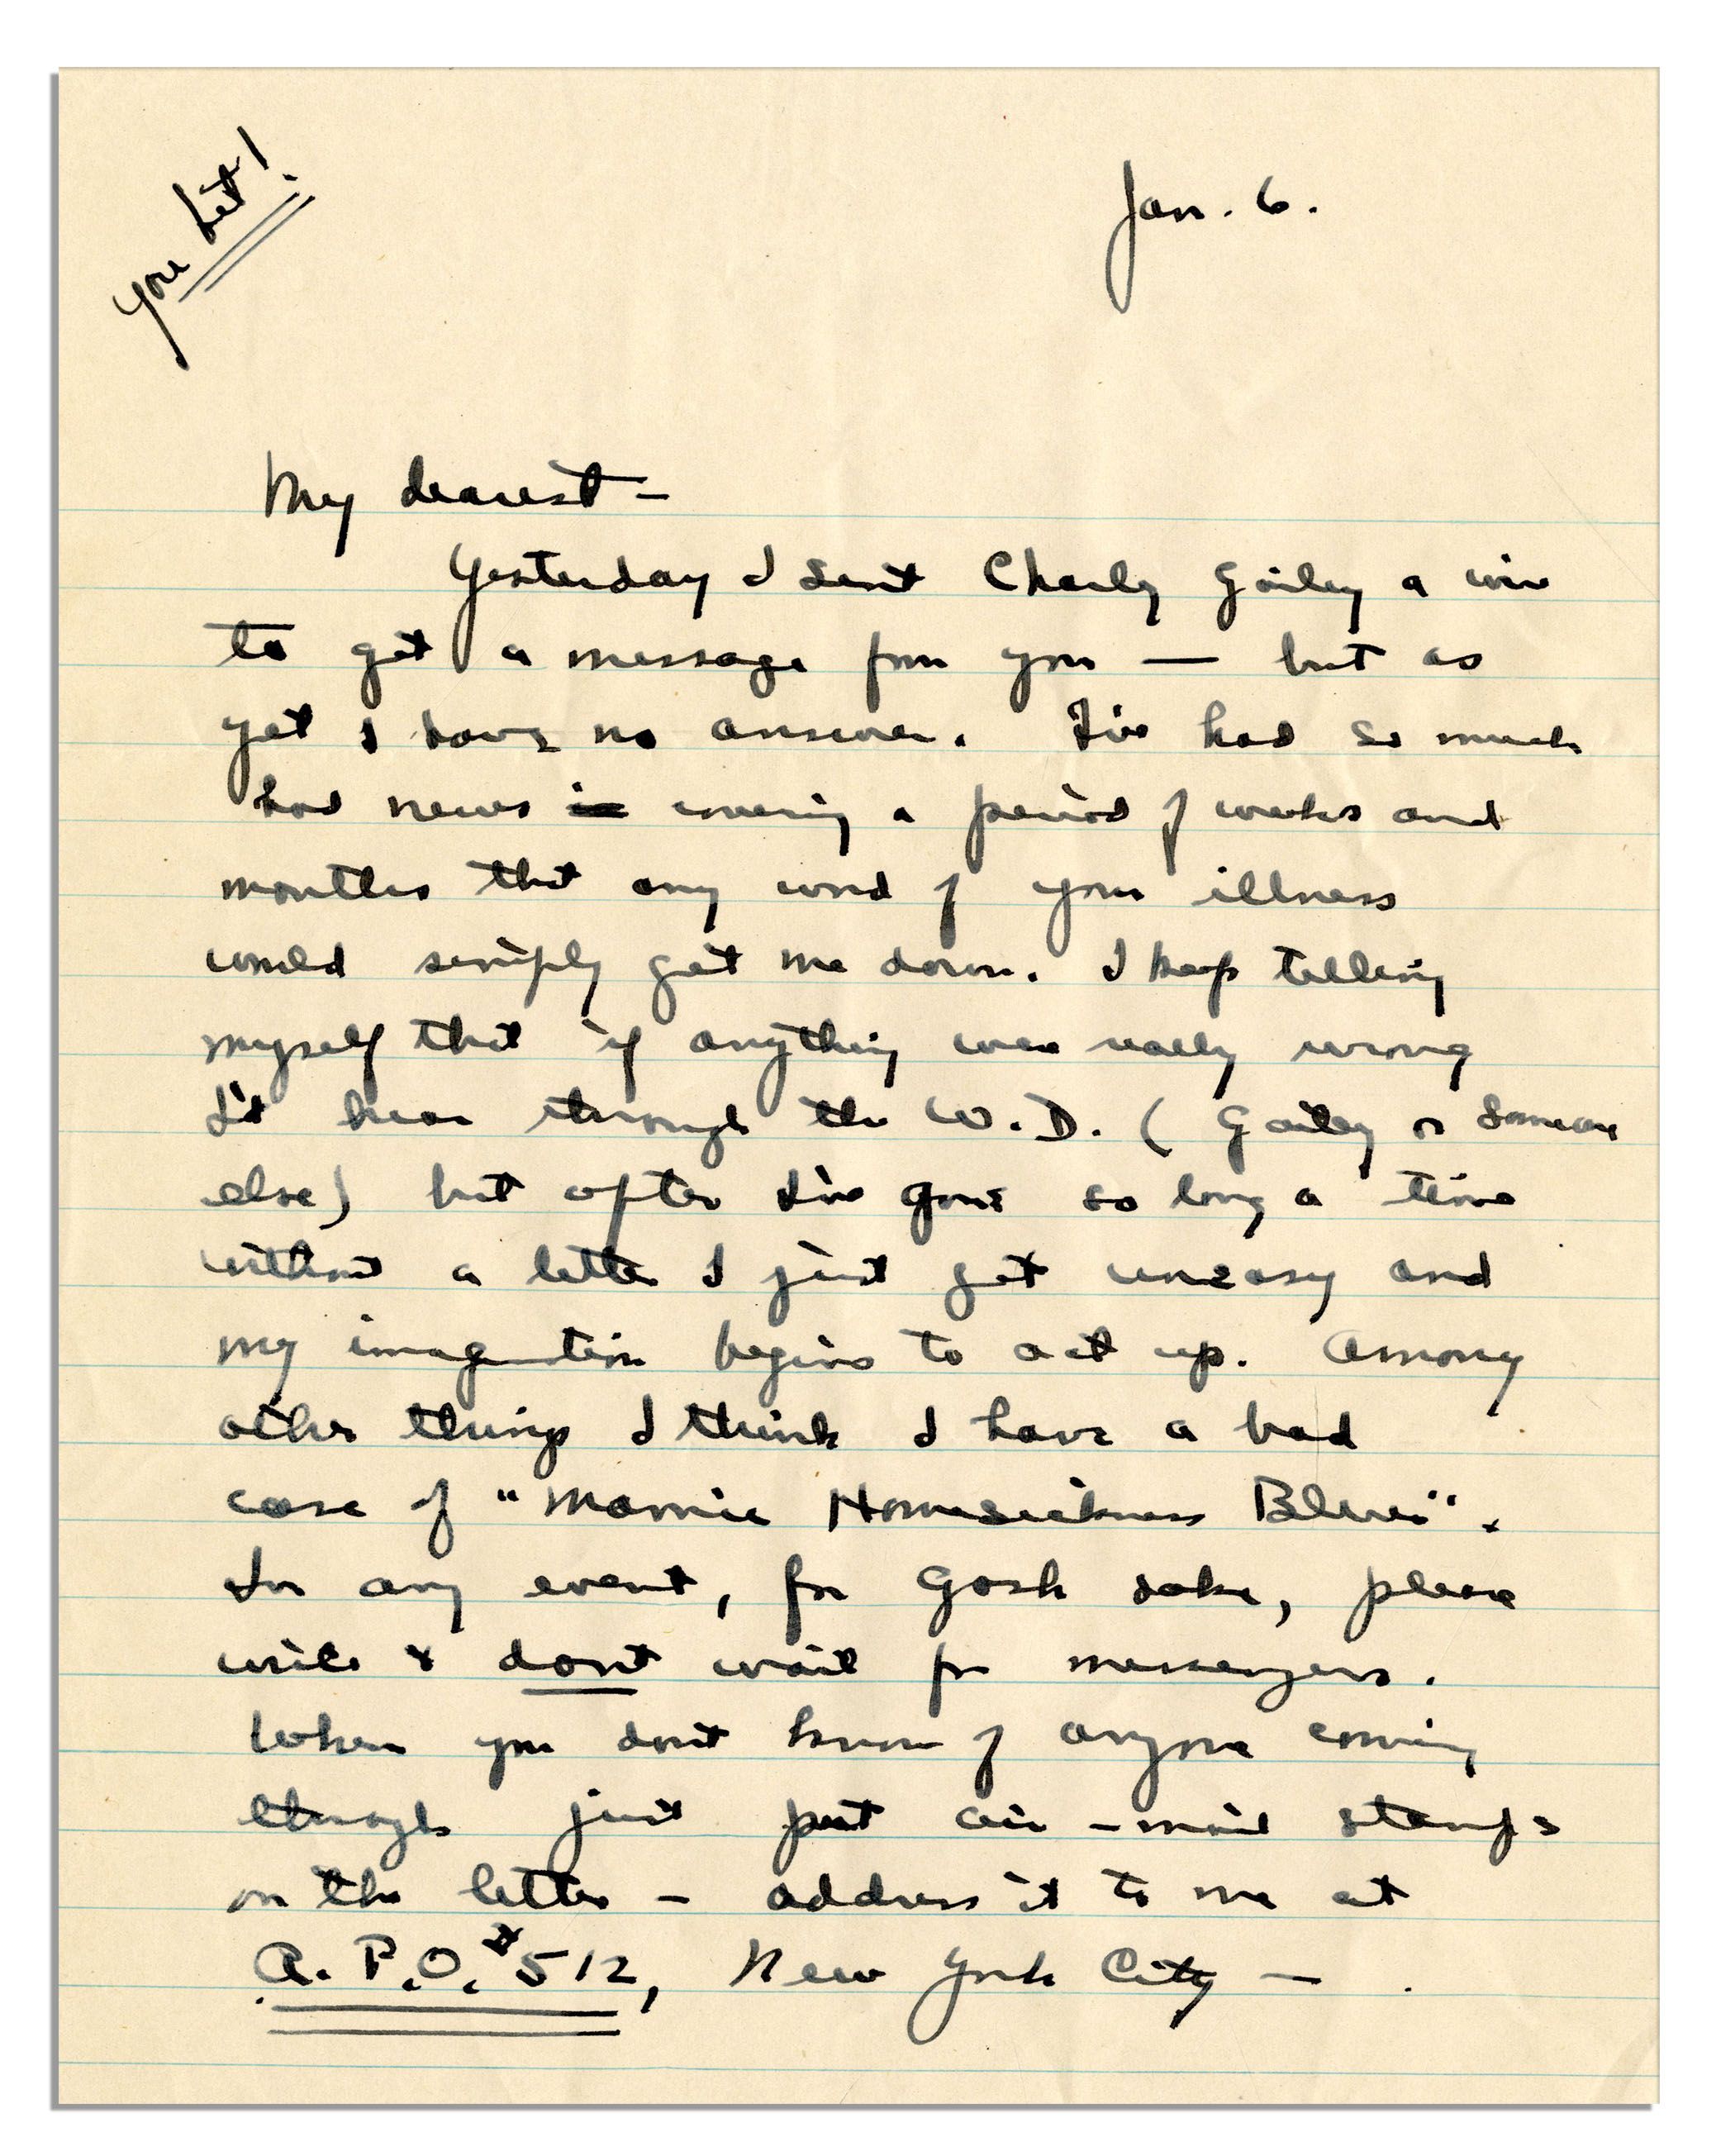 you bet!
Jan. 6.
My dearest –
Yesterday I sent Charly Gailey a wire
to get a message from you — but as
yet I have no answer. I've had so much
bad news covering a period of weeks and
months that any word of your illness
would simply get me down. I keep telling
myself that if anything were really wrong
I'd hear through the W.D. (Gailey or someone
else) but after I've gone so long a time
without a letter I just get uneasy and
my imagination begins to act up. Among
other things I think I have a bad
case of "Mamie Homesickness Blues".
In any event, for gosh sake, please
write & don't wait for messengers.
When you don't know of anyone coming
through just put air-mail stamps
on the letter – address it to me at
A.P.O. #512, New York City —